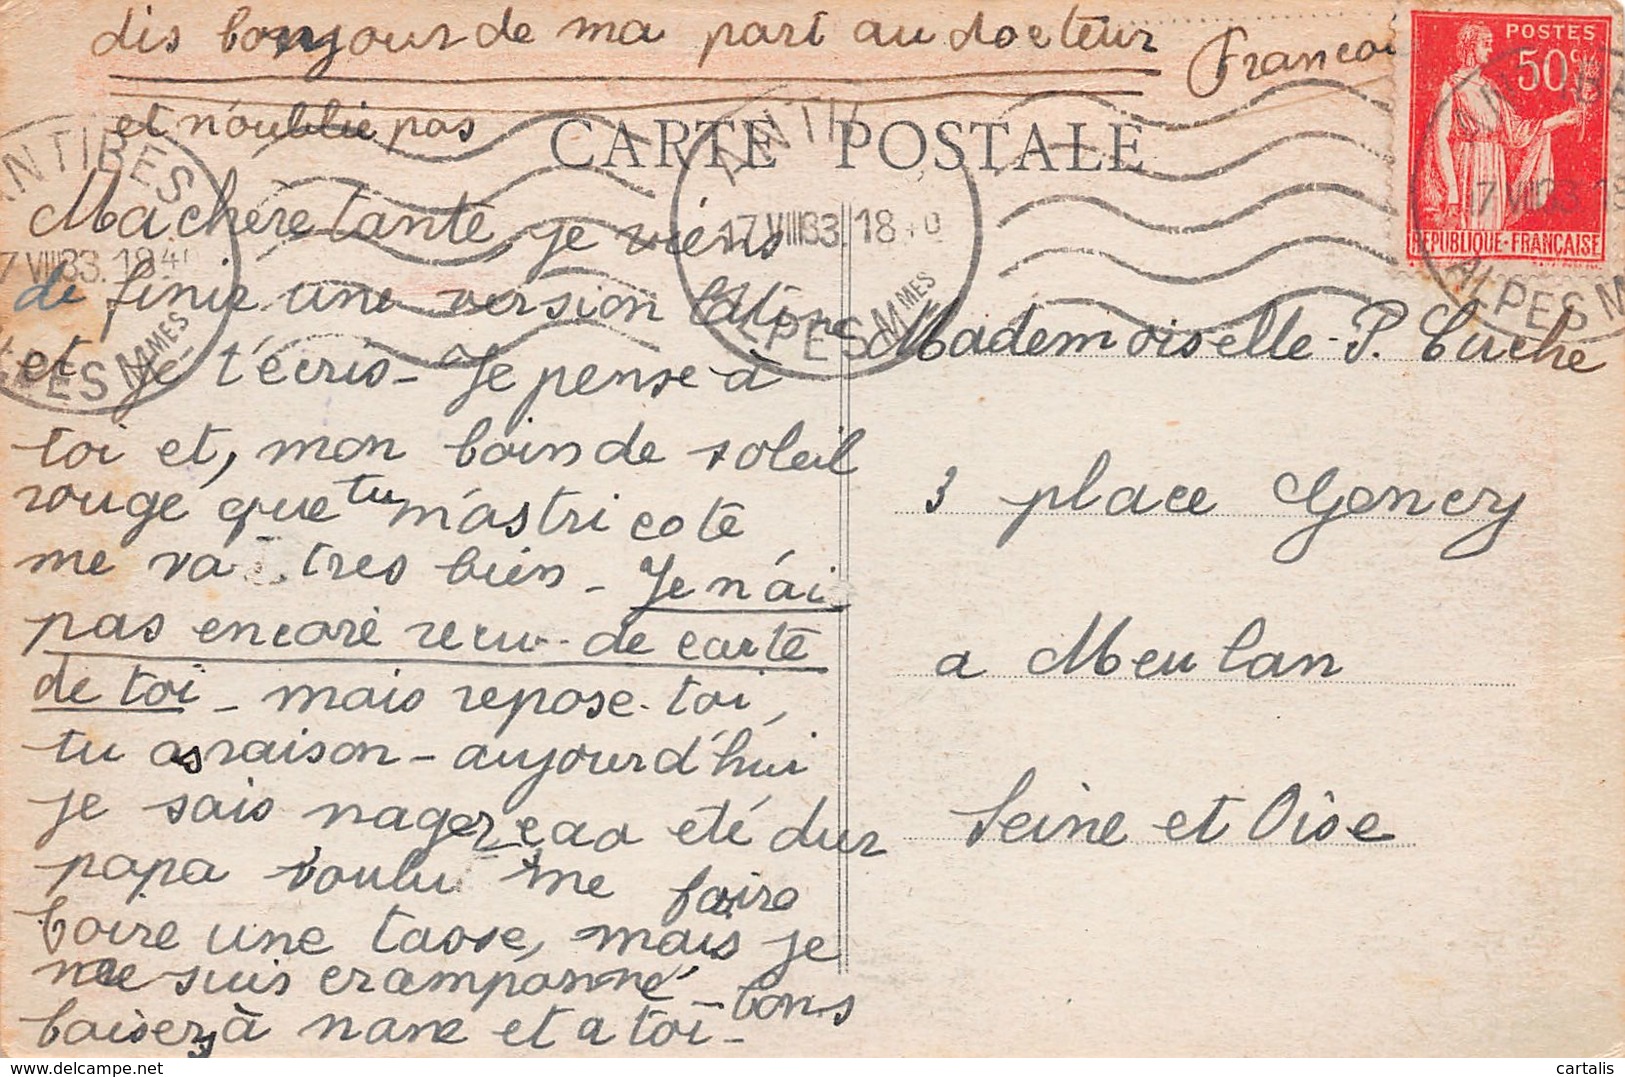 dis bonjour de ma part au docteur Francoi
et n'oublie pas
CARTE POSTALE
POSTES
50c
REPUBLIQUE-FRANÇAISE
ANTIBES
17 VIII 33. 18 40
ALPES M MES
Ma chere tante, je viens
de finir une version latine
et je t'écris - Je pense à
toi et, mon bain de soleil
rouge que tu m'as tricoté
me va tres bien - Je n'ai
pas encore recu de carte
de toi - mais repose-toi,
tu as raison - aujourd'hui
je sais nager, ca a été dur
papa voulu me faire
boire une tasse, mais je
me suis cramponné - bons
baisers à nane et a toi -
Mademoiselle P. Cuche
3 place Gency
a Meulan
Seine et Oise
cartalis